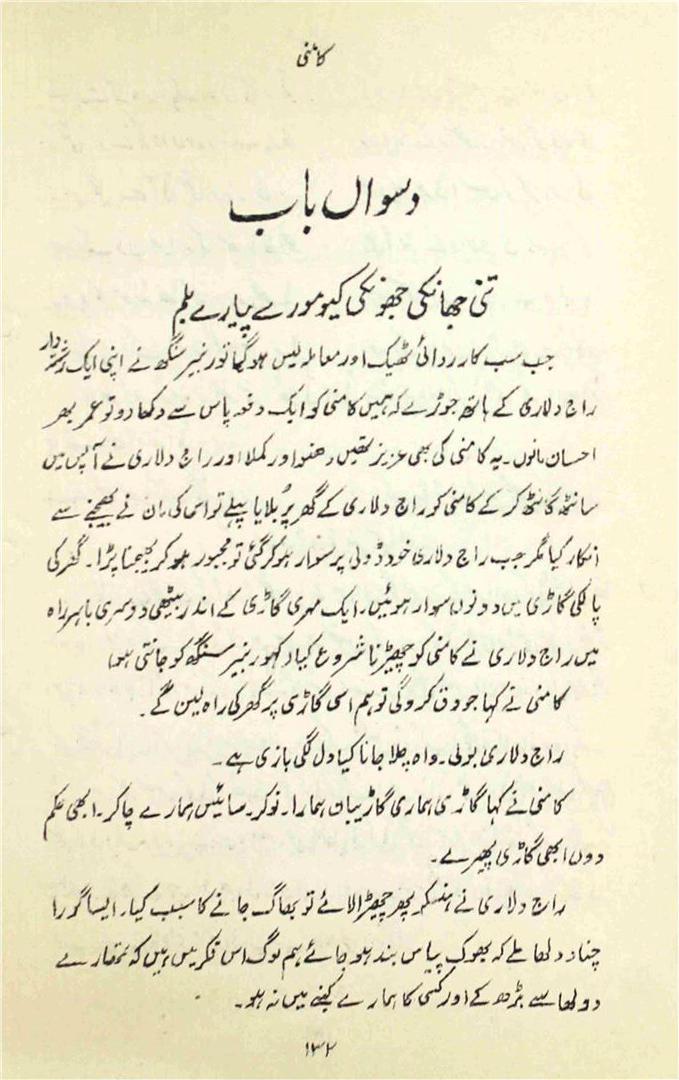 کامنی
دسواں باب
تنی جھانکی جھونکی کیو مورے پیارے بلم
جب سب کارروائی ٹھیک اور معاملہ لیس ہوگیا تو رنبیر سنگھ نے اپنی ایک رشتہ دار
راج دلاری کے ہاتھ جوڑے کہ ہمیں کامنی کو ایک دفعہ پاس سے دکھا دو تو عمر بھر
احسان مانوں۔ یہ کامنی کی بھی عزیز تھیں دھنوا اور کملا اور راج دلاری نے آپس میں
سانٹھ گانٹھ کر کے کامنی کو راج دلاری کے گھر پر بلایا پہلے تو اس کی ماں نے بھیجنے سے
انکار کیا مگر جب راج دلاری خود ڈولی پر سوار ہو کر گئی تو مجبور ہو کر بھیجنا پڑا۔ گھر کی
پالکی گاڑی میں دونوں سوار ہوئیں۔ ایک مہری گاڑی کے اندر بیٹھی دوسری باہر راہ
میں راج دلاری نے کامنی کو چھیڑنا شروع کیا دکہو رنبیر سنگھ کو جانتی ہو
کامنی نے کہا جو دق کروگی تو ہم اسی گاڑی پر گھر کی راہ لیں گے۔
راج دلاری بولی۔ واہ چلا جانا کیا دل لگی بازی ہے۔
کامنی نے کہا گاڑی ہماری گاڑیبان ہمارا۔ نوکر۔ سائیس ہمارے چاکر۔ ابھی حکم
دوں ابھی گاڑی پھیرے۔
راج دلاری نے ہنسکر پھر چھیڑا لائے تو بھاگ جانے کا سبب کیا۔ ایسا گورا
چٹا دولھا ملے کہ بھوک پیاس بند ہو جائے ہم لوگ اس فکر میں ہیں کہ تمھارے
دولھا سے بڑھ کے اور کسی کا ہمارے کنبے میں نہ ہو۔
۱۳۲